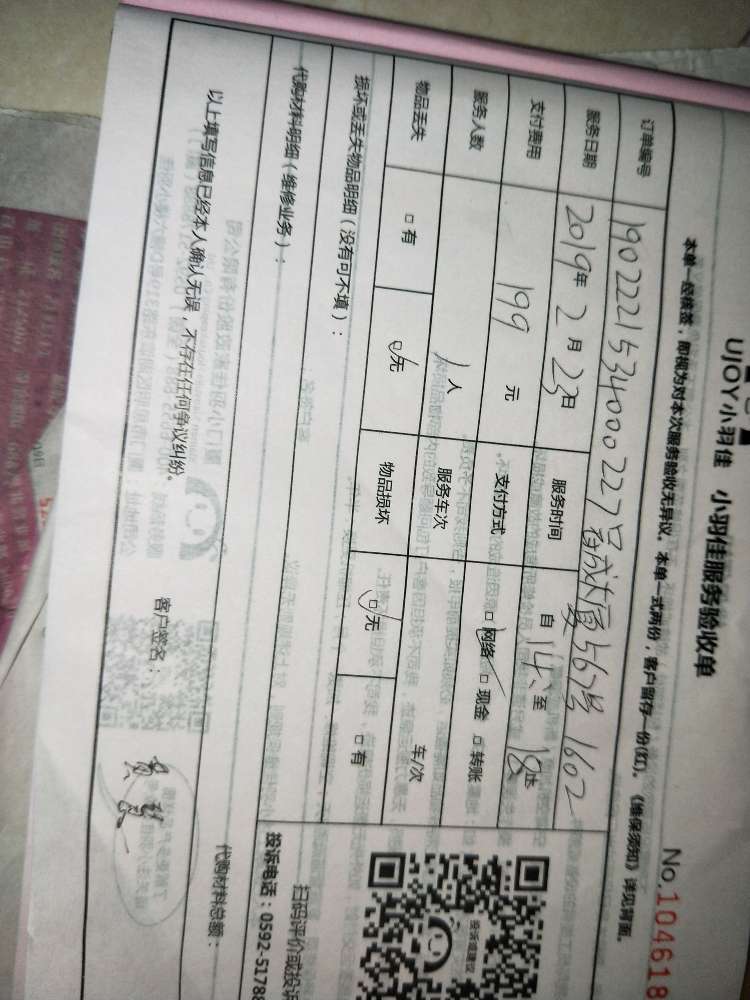 UJOY小羽佳 小羽佳服务验收单
No.104618
本单一经核签，即视为对本次服务验收无异议。本单一式两份，客户留存一份(红)。《维保须知》详见背面。
订单编号 1902221534000227
567号 1602
服务日期 2019年2月23日 服务时间 自14至18止
支付费用 199元 支付方式 □网络 □现金 □转账
服务人数 1人 服务车次 车/次
物品丢失 □有 □无 物品损坏 □无 □有
损坏或丢失物品明细（没有可不填）：
代购材料明细（维修业务）：
代购材料总额：
以上填写信息已经本人确认无误，不存在任何争议纠纷。 客户签名：
扫码评价或投诉
投诉电话：0592-51788